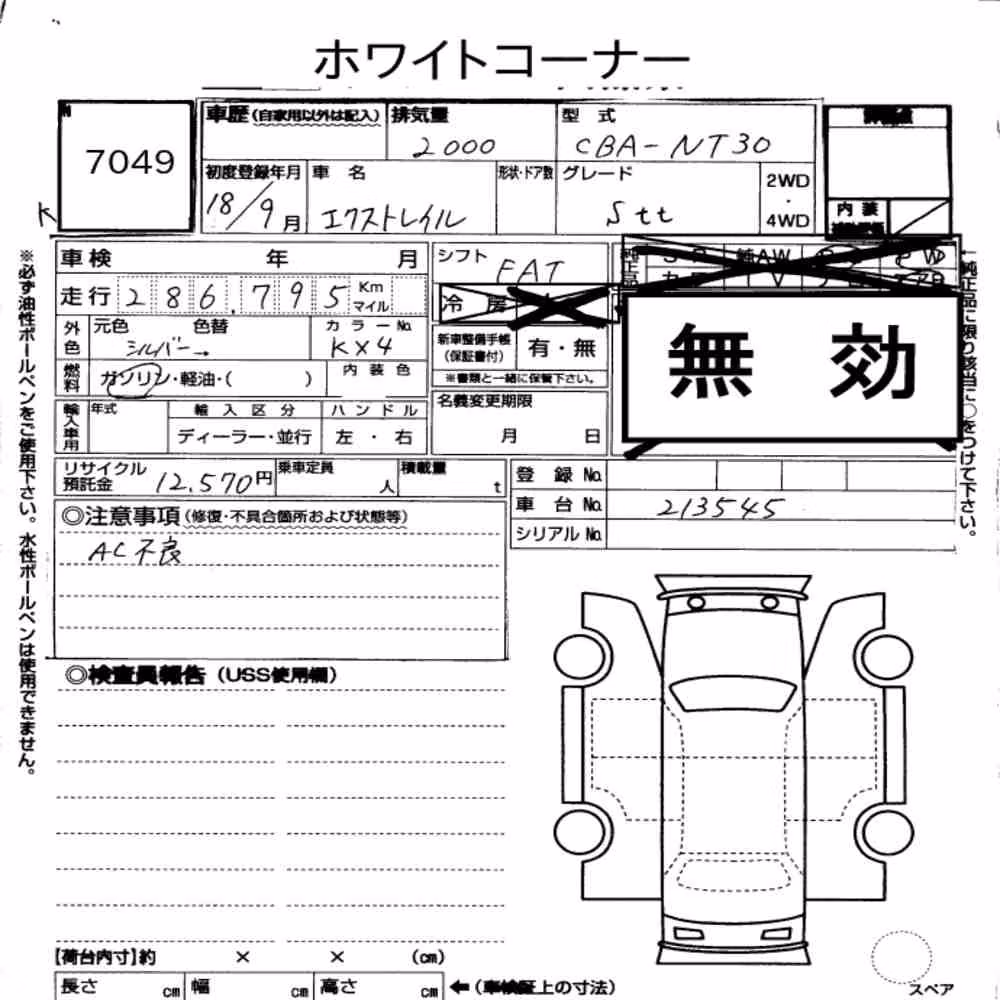 ホワイトコーナー
7049
K
車歴 (自家用以外は記入) 排気量 型式
2000 CBA-NT30
初度登録年月 車名 形状・ドア数 グレード 2WD・4WD
18/9月 エクストレイル Stt
内装
車検 年 月
シフト FAT
走行 286,795 Km マイル
冷房
純正品
純AW
外色 元色 色替 カラーNo.
シルバー→ KX4
新車整備手帳(保証書付) 有・無
※書類と一緒に保管下さい。
燃料 ガソリン・軽油・( ) 内装色
無効
輸入車用 年式 輸入区分 ハンドル
ディーラー・並行 左・右
名義変更期限
月 日
リサイクル預託金 12,570円 乗車定員 人 積載量 t
登録No.
車台No. 213545
シリアルNo.
◎注意事項 (修復・不具合箇所および状態等)
AC不良
◎検査員報告 (USS使用欄)
【荷台内寸】約 × × (cm)
長さ cm 幅 cm 高さ cm ←(車検証上の寸法)
スペア
※必ず油性ボールペンをご使用下さい。水性ボールペンは使用できません。
純正品に限り該当に○をつけて下さい。